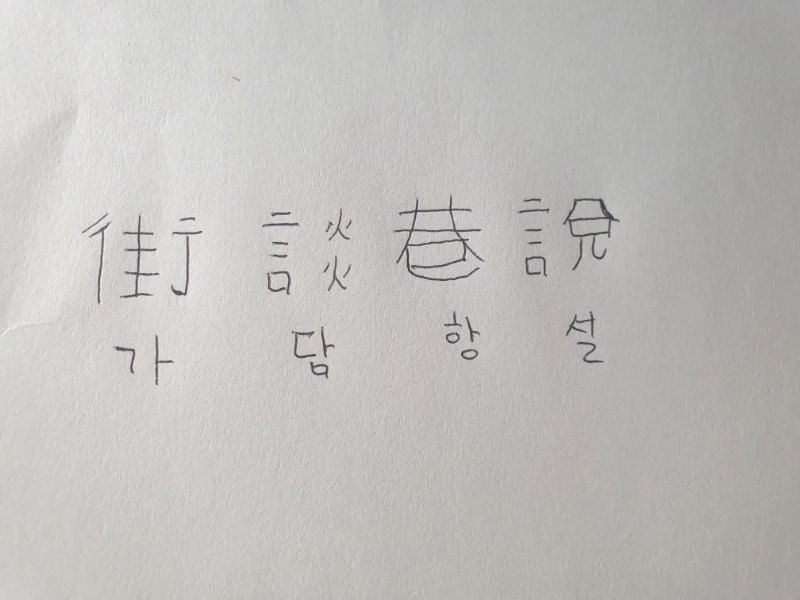 街 談 巷 說
가 담 항 설